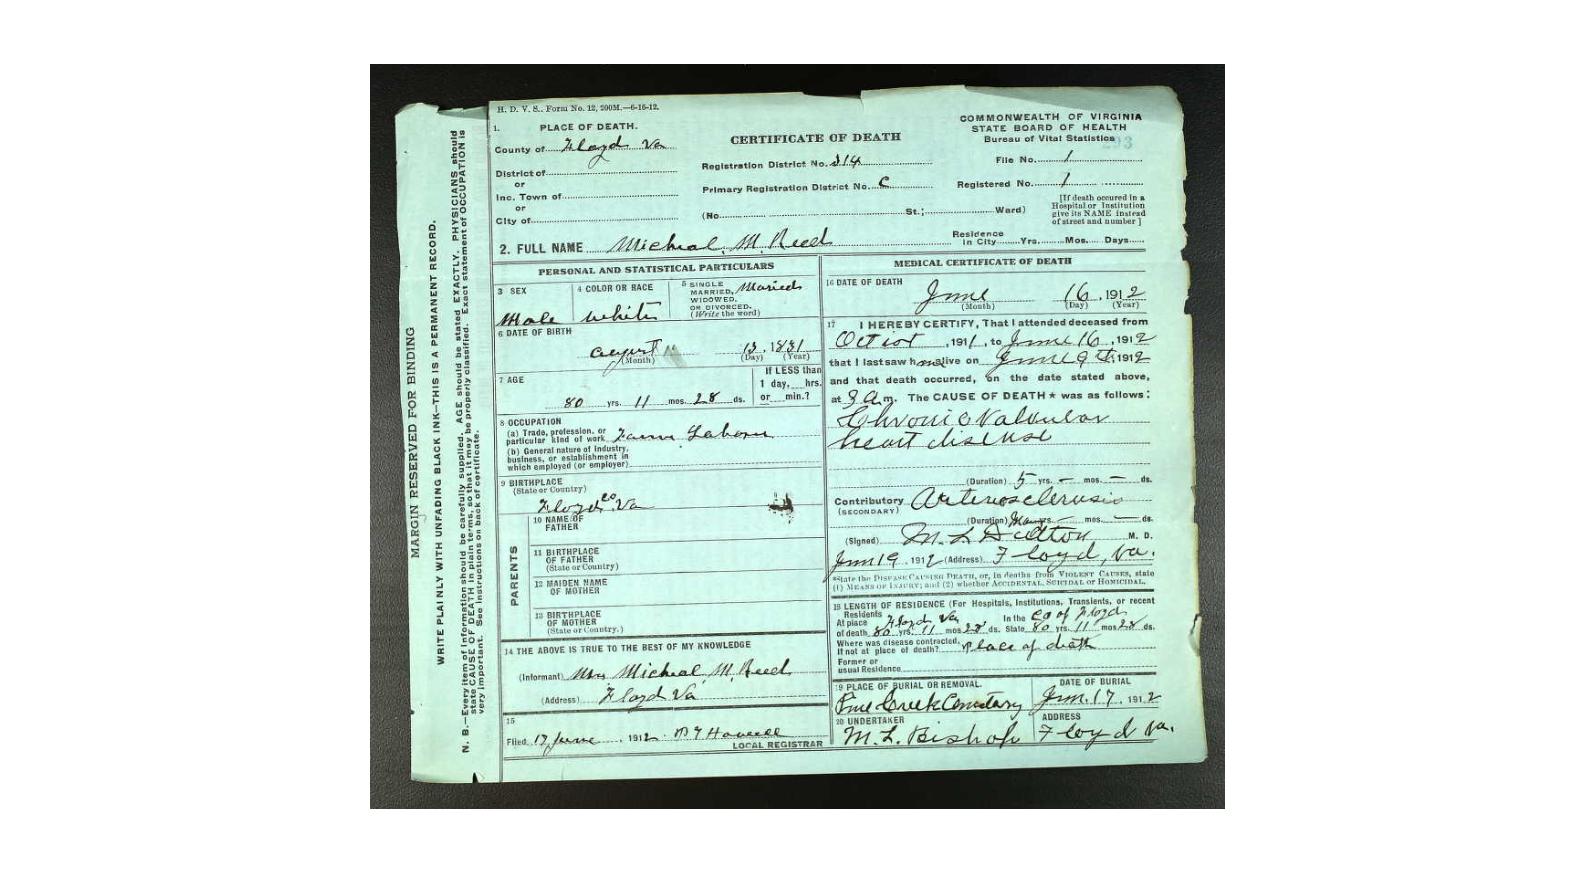 H. D. V. S.. Form No. 12, 200M.—6-16-12.
1. PLACE OF DEATH.
County of Floyd Va
District of
or
Inc. Town of
or
City of
CERTIFICATE OF DEATH
Registration District No. 314
Primary Registration District No. C
(No. St.; Ward)
COMMONWEALTH OF VIRGINIA
STATE BOARD OF HEALTH
Bureau of Vital Statistics
File No. 1
Registered No. 1
[If death occured in a
Hospital or Institution
give its NAME instead
of street and number]
2. FULL NAME Micheal. M. Reed
Residence
in City Yrs. Mos. Days
PERSONAL AND STATISTICAL PARTICULARS
3 SEX
Male
4 COLOR OR RACE
white
5 SINGLE
MARRIED,
WIDOWED.
OR DIVORCED.
(Write the word)
Maried
6 DATE OF BIRTH
13, 1831
(Month) (Day) (Year)
7 AGE
80 yrs. 11 mos. 28 ds.
If LESS than
1 day, hrs.
or min.?
8 OCCUPATION
(a) Trade, profession, or
particular kind of work Farm Laborer
(b) General nature of industry,
business, or establishment in
which employed (or employer)
9 BIRTHPLACE
(State or Country)
Floyd co. Va
PARENTS
10 NAME OF
FATHER
11 BIRTHPLACE
OF FATHER
(State or Country)
12 MAIDEN NAME
OF MOTHER
13 BIRTHPLACE
OF MOTHER
(State or Country.)
14 THE ABOVE IS TRUE TO THE BEST OF MY KNOWLEDGE
(Informant) Mrs Micheal. M. Reed
(Address) Floyd Va
15
Filed 17 June, 1912
LOCAL REGISTRAR
MEDICAL CERTIFICATE OF DEATH
16 DATE OF DEATH
June 16, 1912
(Month) (Day) (Year)
17 I HEREBY CERTIFY, That I attended deceased from
, 1911, to June 16, 1912
that I last saw h alive on June 9, 1912
and that death occurred, on the date stated above,
at m. The CAUSE OF DEATH * was as follows:
Chronic Valvular
heart disease
(Duration) 5 yrs. — mos. — ds.
Contributory Arteriosclerosis
(SECONDARY)
(Duration) Many yrs. — mos. — ds.
(Signed) M. L. Dalton M. D.
Jun 19 1912 (Address) Floyd, Va.
*State the DISEASE CAUSING DEATH, or, in deaths from VIOLENT CAUSES, state
(1) MEANS OF INJURY; and (2) whether ACCIDENTAL, SUICIDAL or HOMICIDAL.
18 LENGTH OF RESIDENCE (For Hospitals, Institutions, Transients, or recent
Residents
At place Floyd Va In the Co of Floyd
of death 80 yrs. 11 mos 28 ds. State 80 yrs. 11 mos 28 ds.
Where was disease contracted,
if not at place of death? Place of death
Former or
usual Residence
19 PLACE OF BURIAL OR REMOVAL.
Pine Creek Cemetary
DATE OF BURIAL
Jun. 17, 1912
20 UNDERTAKER
M. L. Bishop
ADDRESS
Floyd Va.
MARGIN RESERVED FOR BINDING
WRITE PLAINLY WITH UNFADING BLACK INK—THIS IS A PERMANENT RECORD.
N. B.—Every item of information should be carefully supplied. AGE should be stated EXACTLY. PHYSICIANS should
state CAUSE OF DEATH in plain terms, so that it may be properly classified. Exact statement of OCCUPATION is
very important. See instructions on back of certificate.